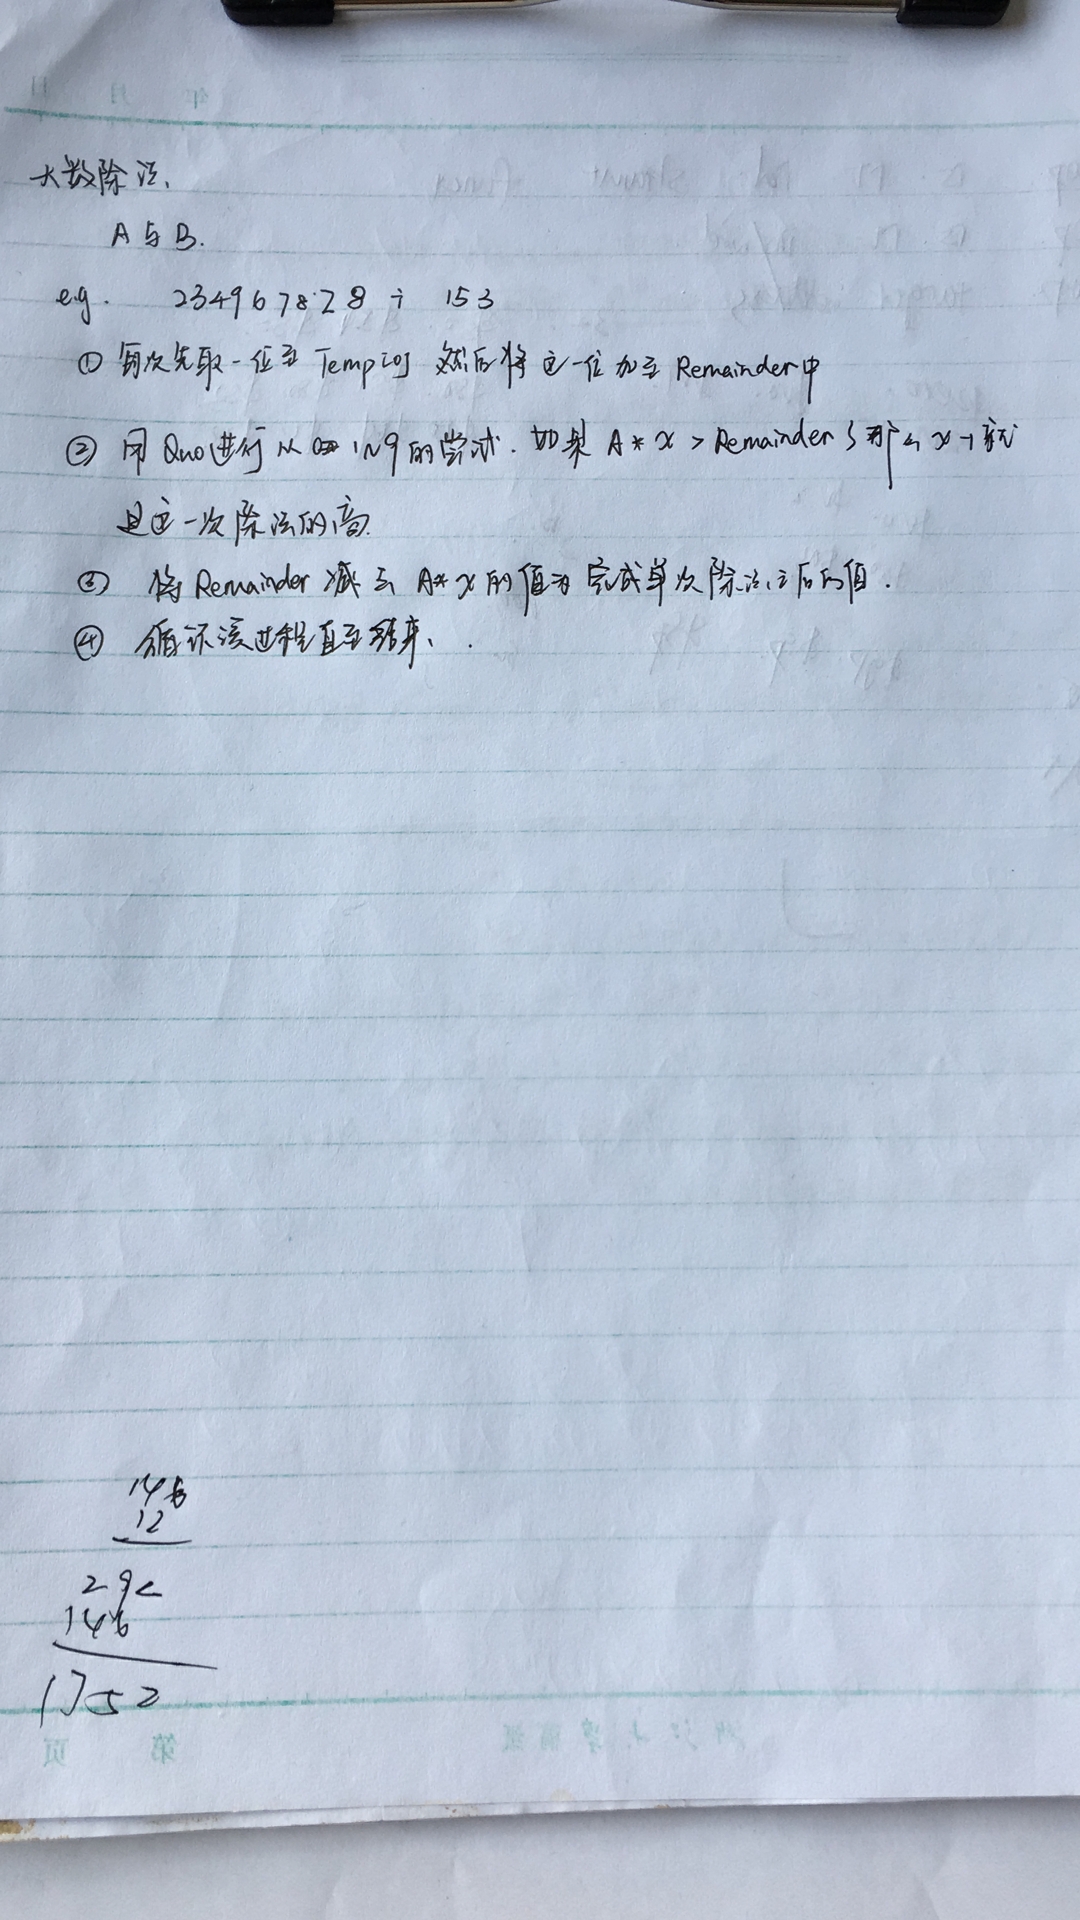 大数除法、
A与B.
e.g. 234967828 ÷ 153
① 每次先取一位至 Temp[0] 然后将这一位加至 Remainder中
② 用 Quo进行从 1~9的尝试. 如果 A * x > Remainder 了那么 x-1 就
是这一次除法的商.
③ 将 Remainder 减去 A* x 的值为完成单次除法之后的值.
④ 循环该过程直至结束、.
146
12
292
146
1752
第 页